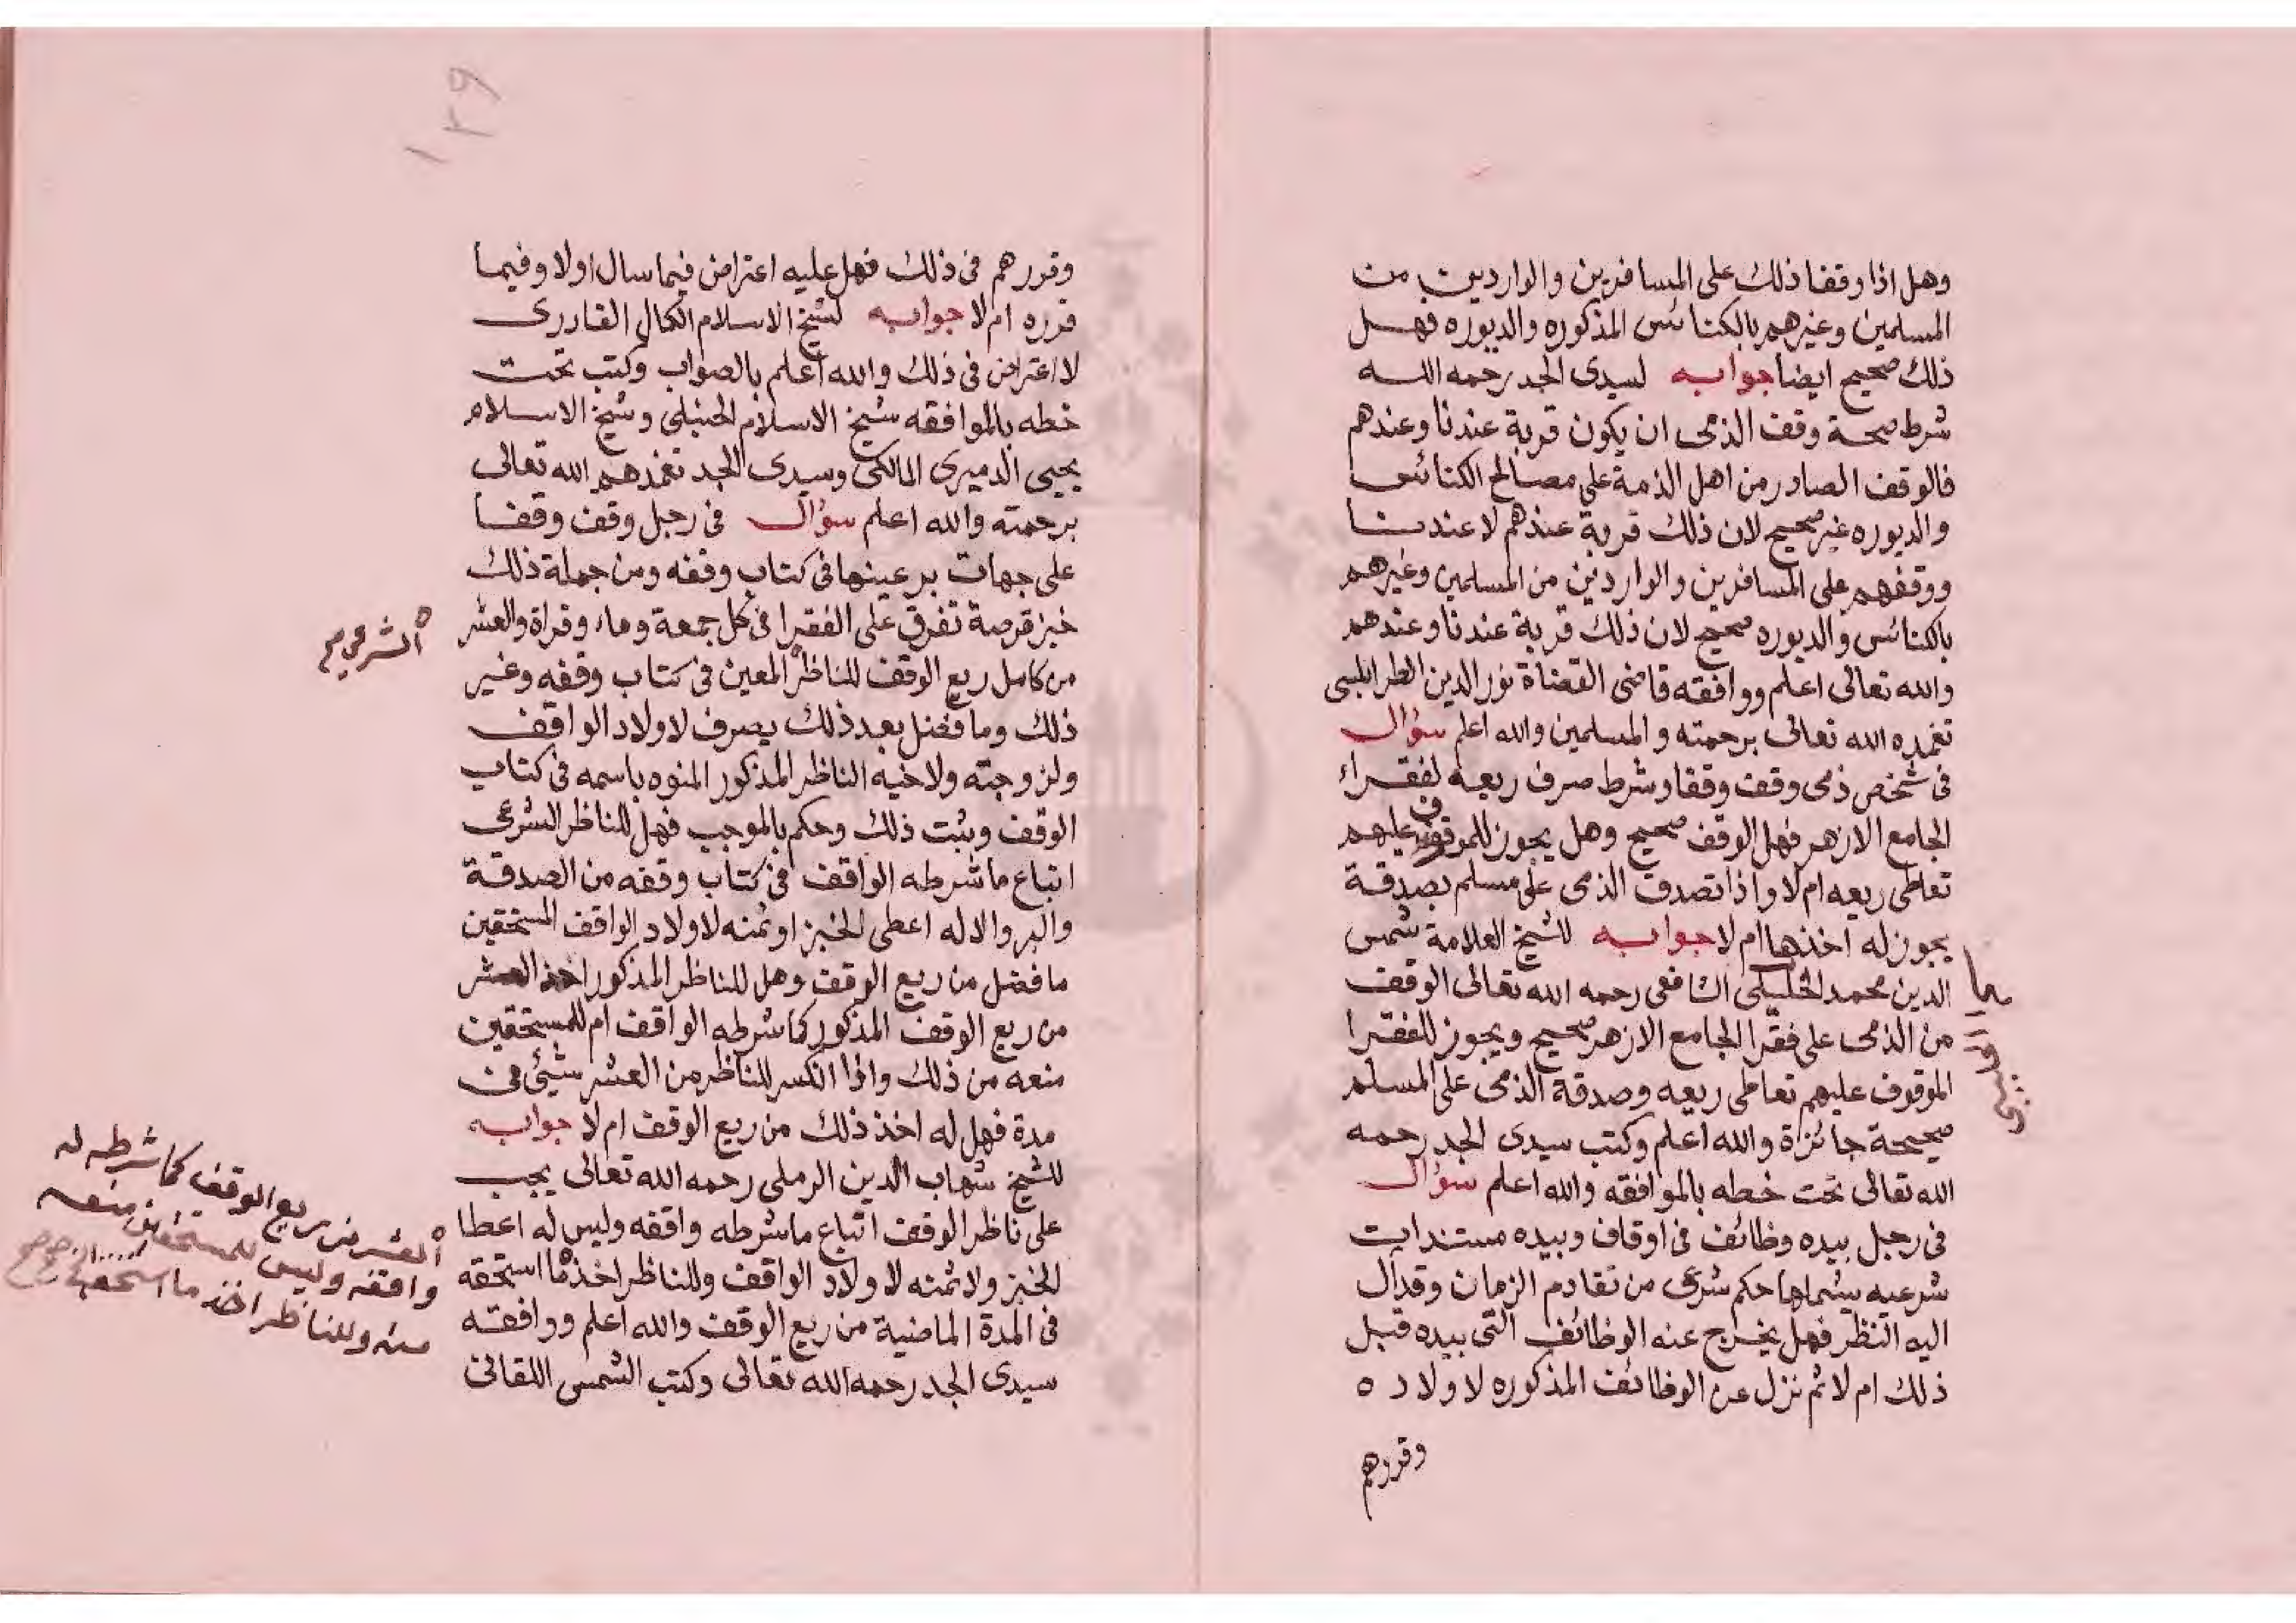 وهل اذا وقفا ذلك على المسافرين والواردين من
المسلمين وغيرهم بالكنائس المذكوره والديوره فهل
ذلك صحيح ايضا جوابه لسيدى الجد رحمه الله
شرط صحة وقف الذمى ان يكون قربة عندنا وعندهم
فالوقف الصادر من اهل الذمة على مصالح الكنائس
والديوره غير صحيح لان ذلك قربة عندهم لا عندنا
ووقفهم على المسافرين والواردين من المسلمين وغيرهم
بالكنائس والديوره صحيح لان ذلك قربة عندنا وعندهم
والله تعالى اعلم ووافقه قاضى القضاة نور الدين الطرابلسى
تغمده الله تعالى برحمته والمسلمين والله اعلم سؤال
فى شخص ذمى وقف وقفا وشرط صرف ريعه لفقراء
الجامع الازهر فهل الوقف صحيح وهل يجوز للموقوف عليهم
تعاطى ريعه ام لا واذا تصدق الذمى على مسلم بصدقة
يجوز له اخذها ام لا جوابه للشيخ العلامة شمس
الدين محمد الخليلى الشافعى رحمه الله تعالى الوقف
من الذمى على فقرا الجامع الازهر صحيح ويجوز للفقرا
الموقوف عليهم تعاطى ريعه وصدقة الذمى على المسلم
صحيحة جائزاة والله اعلم وكتب سيدى الجد رحمه
الله تعالى تحت خطه بالموافقه والله اعلم سؤال
فى رجل بيده وظائف فى اوقاف وبيده مستندات
شرعيه بشملها حكم شرعى من تقادم الزمان وقد آل
اليه النظر فهل يخرج عنه الوظائف التى بيده قبل
ذلك ام لا ثم نزل عن الوظائف المذكوره لاولاد ه
وقررهم
١٣٩
وقررهم فى ذلك فهل عليه اعتراض فيما سال اولا وفيما
قرره ام لا جوابه لشيخ الاسلام الكمال القادرى
لا اعتراض فى ذلك والله اعلم بالصواب وكتب تحت
خطه بالموافقه شيخ الاسلام الحنبلى وشيخ الاسلام
يحيى الدميرى المالكى وسيدى الجد تغمدهم الله تعالى
برحمته والله اعلم سؤال فى رجل وقف وقفا
على جهات بر عينها فى كتاب وقفه ومن جملة ذلك
خبز قرصة تفرق على الفقرا فى كل جمعة وماء وقراة والعشر
من كامل ريع الوقف للناظر المعين فى كتاب وقفه وغير
الشرعى صح
ذلك وما فضل بعد ذلك يصرف لاولاد الواقف
ولزوجته ولاخيه الناظر المذكور المنوه باسمه فى كتاب
الوقف وثبت ذلك وحكم بالموجب فهل للناظر الشرعى
اتباع ما شرطه الواقف فى كتاب وقفه من الصدقة
والبر والا له اعطى الخبز او ثمنه لاولاد الواقف المستحقين
ما فضل من ريع الوقف وهل للناظر المذكور اخذ العشر
من ريع الوقف المذكور كما شرطه الواقف ام للمستحقين
منعه من ذلك واذا انكسر للناظر من العشر شيئ فى
مدة فهل له اخذ ذلك من ريع الوقف ام لا جوابه
للشيخ شهاب الدين الرملى رحمه الله تعالى يجب
على ناظر الوقف اتباع ما شرطه واقفه وليس له اعطا
الخبز ولا ثمنه لاولاد الواقف وللناظر اخذ ما استحقه
فى المدة الماضية من ريع الوقف والله اعلم ووافقه
سيدى الجد رحمه الله تعالى وكتب الشمس اللقانى
العشر من ريع الوقف كما شرطه له
واقفه وليس للمستحقين منعه
منه وللناظر اخذ ما استحقه